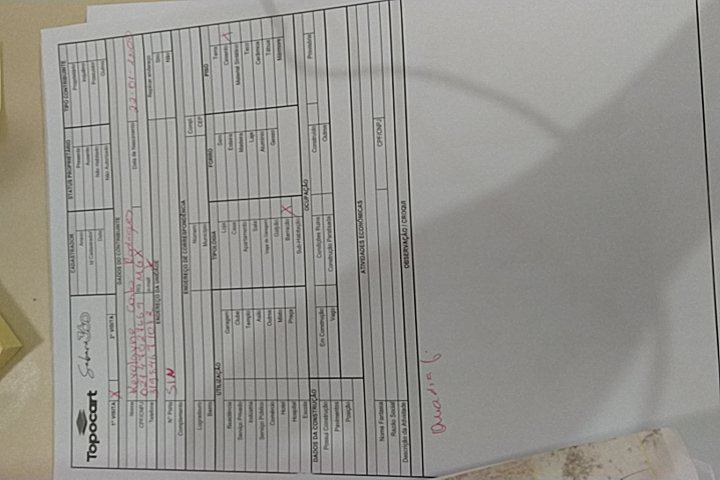 Topocart
CADASTRADOR
STATUS PROPRIETÁRIO
TIPO CONTRIBUINTE
Anexo
Presente
Proprietário
Id Cadastrador
Ausente
Inquilino
Data
Não Habitado
Possuidor
Não Autorizado
Outros
1ª VISITA X
2ª VISITA
DADOS DO CONTRIBUINTE
Nome
Rodrigues
Data de Nascimento
CPF/CNPJ
RG
Telefone
e-mail
ENDEREÇO DA UNIDADE
Registrar endereço
Sim
Nº Porta S/N
Não
Complemento
ENDEREÇO DE CORRESPONDÊNCIA
Logradouro
Número
Compl.
Bairro
Município
CEP
UTILIZAÇÃO
TIPOLOGIA
FORRO
PISO
Residência
Garagem
Loja
Sem
Terra
Serviço Privado
Clube
Casa
Esteira
Cimento X
Indústria
Templo
Apartamento
Madeira
Material Sintético
Serviço Público
Asilo
Sala
Laje
Taco
Comércio
Outros
Vaga de Garagem
Alumínio
Cerâmica
Hotel
Misto
Galpão
Gesso
Tábua
Hospital
Praça
Barracão X
Mármore
Escola
Sub-Habitação
DADOS DA CONSTRUÇÃO
OCUPAÇÃO
Possui Construção
Em Construção
Condições Ruins
Construído
Provisória
Pavimentos
Vago
Construção Paralisada
Outros
Posição
ATIVIDADES ECONÔMICAS
Nome Fantasia
CPF/CNPJ
Razão Social
Descrição da Atividade
OBSERVAÇÃO / CROQUI